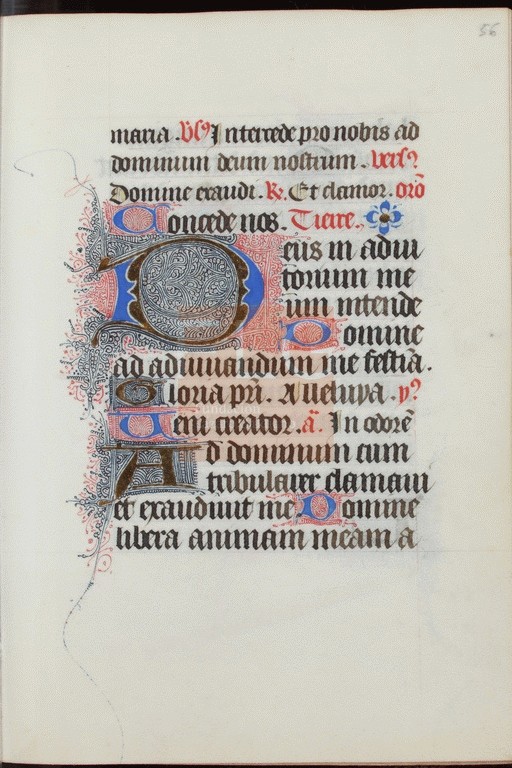 56
maria . Vs9 Intercede pro nobis ad
dominum deum nostrum . Vers9
Domine exaudi . R. Et clamor . orõ
Concede nos . Tierce .
Deus in adiu
torium me
um intende
Domine
ad adiuuandum me festia .
Gloria pri . Alleluya . y9
Ueni creator . ã . In odorẽ
Ad dominum cum
tribularer clamaui
et exaudiuit me Domine
libera animam meam a